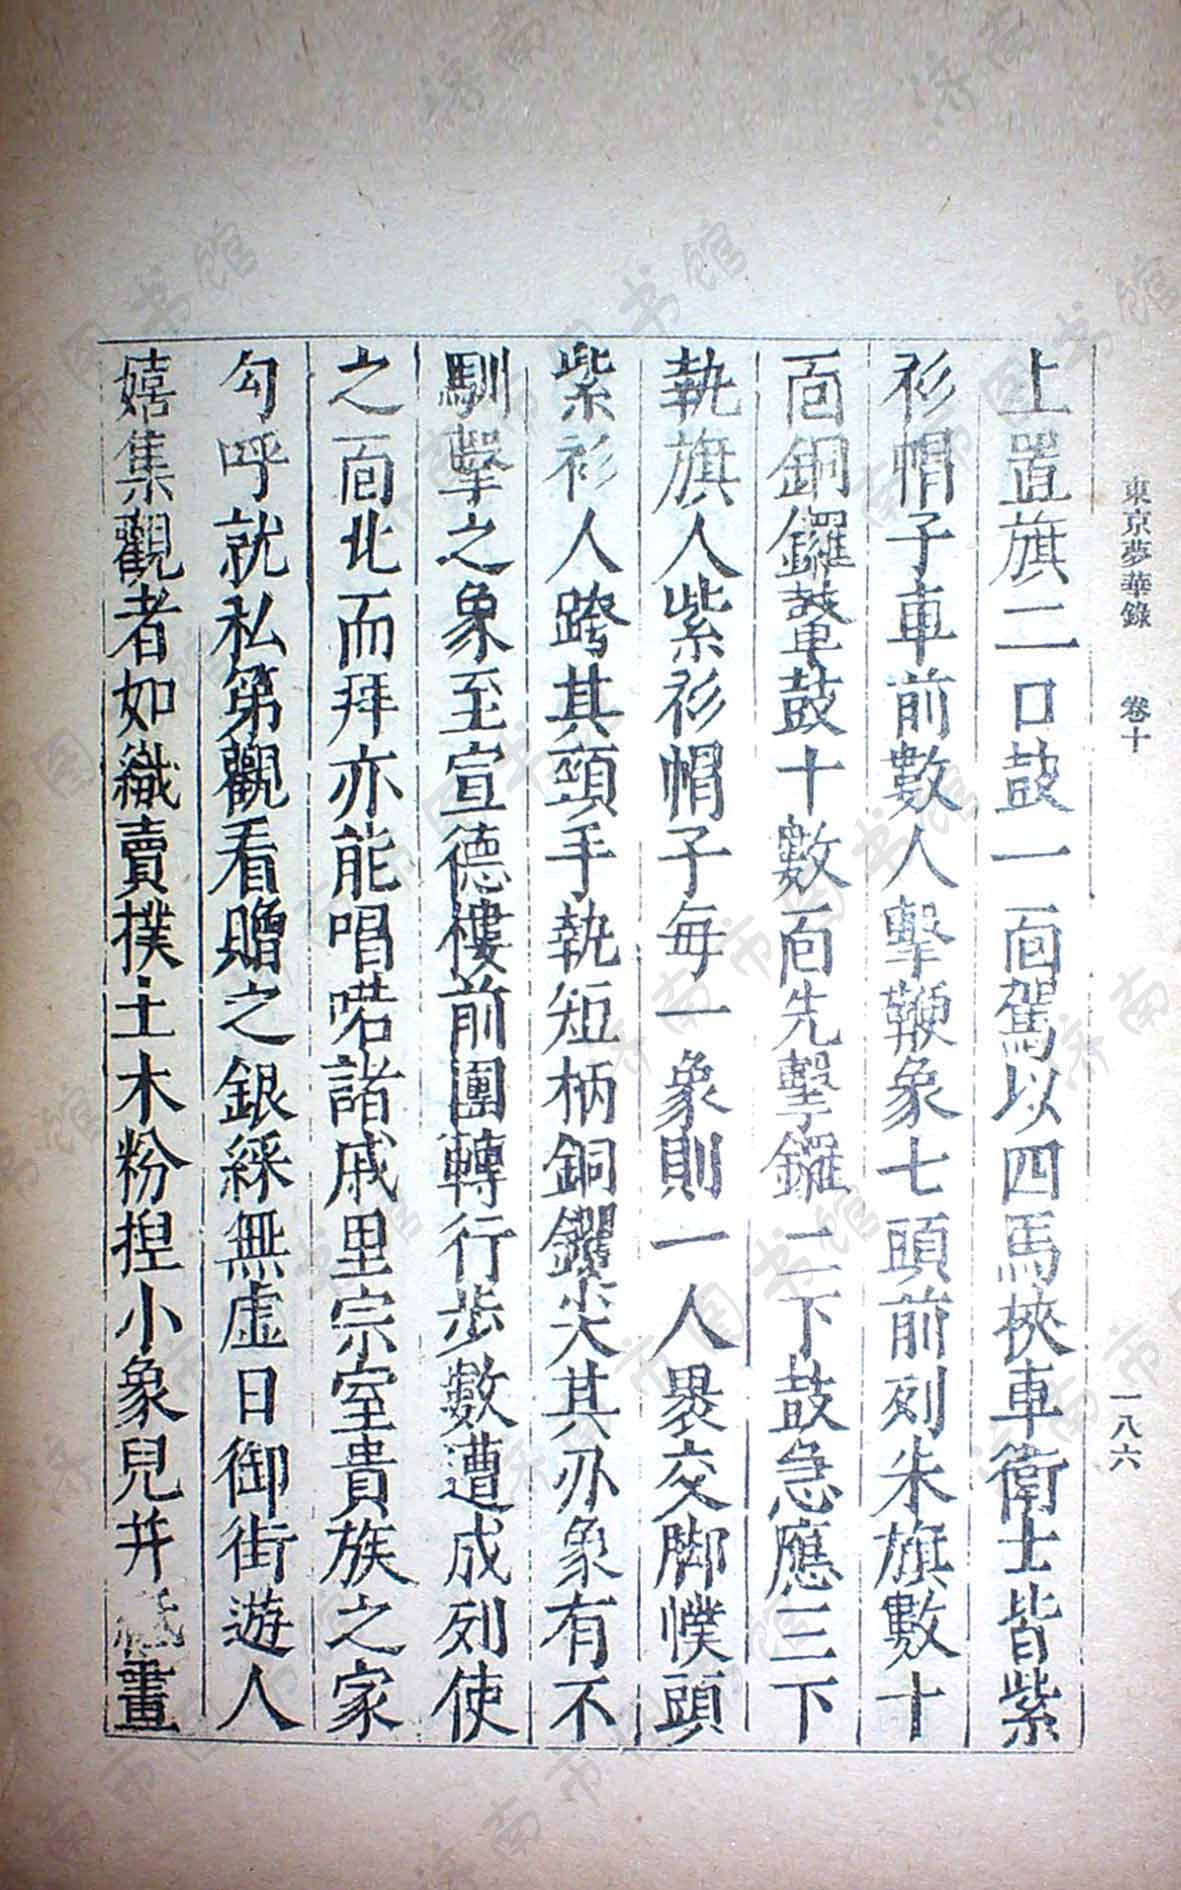 東京夢華錄 卷十 一八六
上置旗二口鼓一面駕以四馬挾車衛士皆紫
衫帽子車前數人擊鞭象七頭前列朱旗數十
面銅鑼鼙鼓十數面先擊鑼二下鼓急應三下
執旗人紫衫帽子每一象則一人裹交脚幞頭
紫衫人跨其頸手執短柄銅钁尖其刃象有不
馴擊之象至宣德樓前團轉行步數遭成列使
之面北而拜亦能唱喏諸戚里宗室貴族之家
勾呼就私第觀看贈之銀綵無虛日御街遊人
嬉集觀者如織賣撲土木粉捏小象兒并紙畫
济南市图书馆